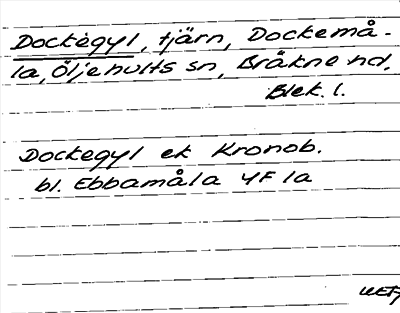 Dockegyl, tjärn, Dockemå-
la, Öljehults sn, Bräkne hd,
Blek. l.
Dockegyl ek Kronob.
bl. Ebbamåla 4F 1a